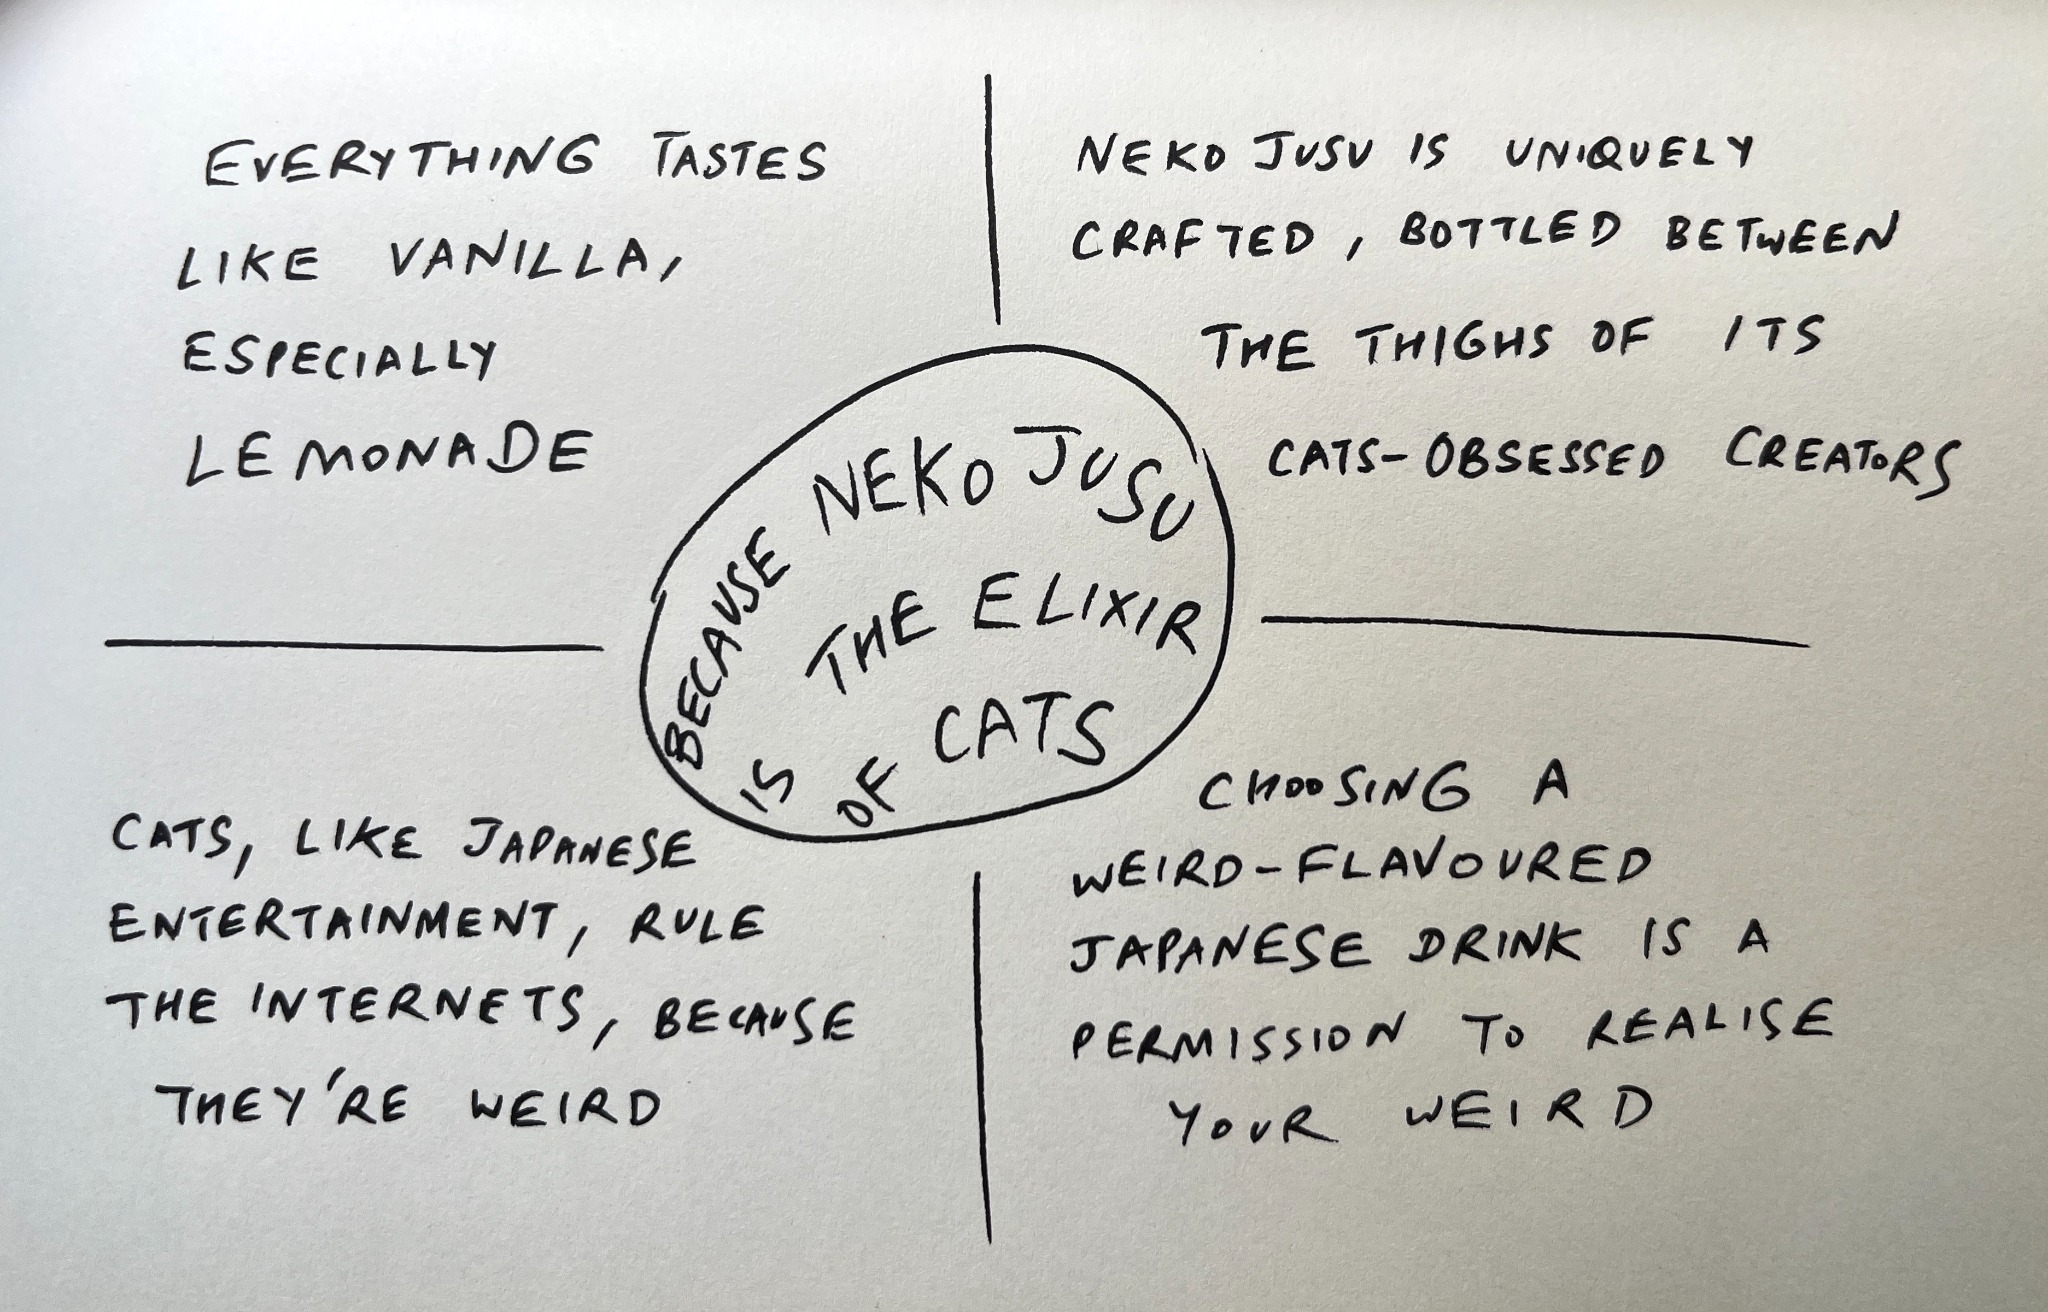 EVERYTHING TASTES
LIKE VANILLA,
ESPECIALLY
LEMONADE
NEKO JUSU IS UNIQUELY
CRAFTED, BOTTLED BETWEEN
THE THIGHS OF ITS
CATS-OBSESSED CREATORS
BECAUSE NEKO JUSU
IS THE ELIXIR
OF CATS
CATS, LIKE JAPANESE
ENTERTAINMENT, RULE
THE INTERNETS, BECAUSE
THEY'RE WEIRD
CHOOSING A
WEIRD-FLAVOURED
JAPANESE DRINK IS A
PERMISSION TO REALISE
YOUR WEIRD